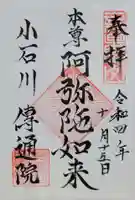 奉拝
令和四年
十月十五日
本尊
阿弥陀如来
小石川 傳通院